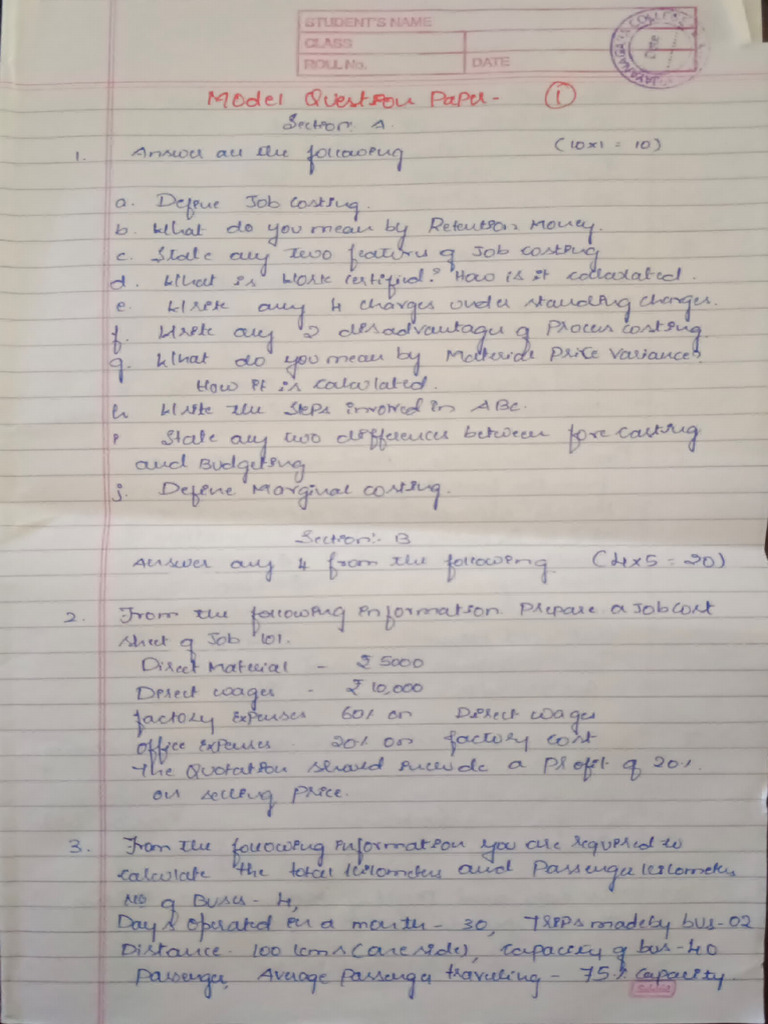 STUDENT'S NAME
CLASS
ROLL No. DATE
Model Question Paper - 1
Section A.
1. Answer all the following (10x1 = 10)
a. Define Job costing.
b. What do you mean by Retention Money.
c. State any two features of Job costing
d. What is work certified? How is it calculated.
e. Write any 4 charges under standing charges.
f. Write any 2 disadvantages of Process costing.
g. What do you mean by Material Price Variance?
How it is calculated.
h. Write the steps involved in ABC.
i State any two differences between forecasting
and Budgeting
j. Define Marginal costing.
Section:- B
Answer any 4 from the following (4x5 = 20)
2. From the following information prepare a Job cost
sheet of Job 101.
Direct Material - ₹ 5000
Direct wages - ₹ 10,000
factory Expenses 60% on Direct wages
office Expenses 20% on factory cost
The Quotation should include a profit of 20%
on selling price.
3. From the following information you are required to
calculate the total kilometers and Passenger kilometers
No of Buses - 4,
Days operated in a month - 30, Trips made by bus - 02
Distance - 100 kms (one side), Capacity of bus - 40
Passenger, Average passenger travelling - 75% capacity